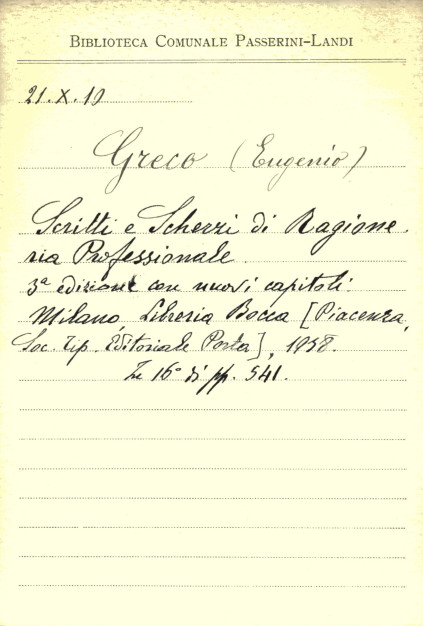 BIBLIOTECA COMUNALE PASSERINI-LANDI
21.X.10
Greco (Eugenio)
Scritti e Scherzi di Ragione
ria Professionale.
3ª edizione con nuovi capitoli.
Milano, Libreria Bocca [Piacenza,
Soc. Tip. Editoriale Porta], 1938.
In 16° di pp. 541.